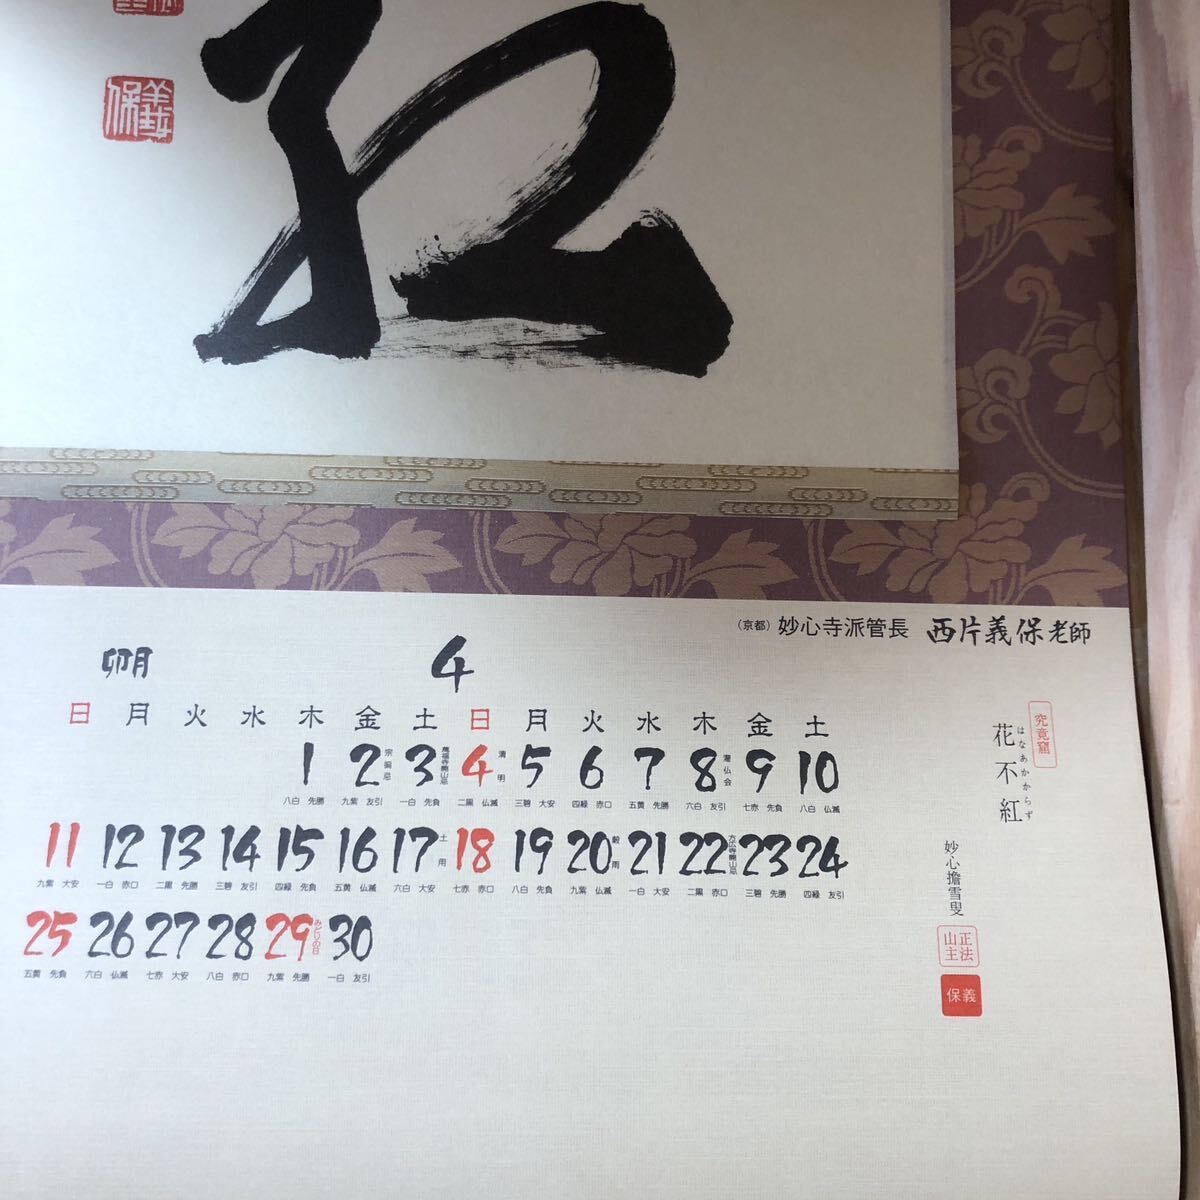 紅
義保
(京都) 妙心寺派管長 西片義保老師
卯月 4
日 月 火 水 木 金 土 日 月 火 水 木 金 土
1 2 宗偏忌 3 萬福寺開山忌 4 清明 5 6 7 8 灌仏会 9 10
八白 先勝 九紫 友引 一白 先負 二黒 仏滅 三碧 大安 四緑 赤口 五黄 先勝 六白 友引 七赤 先負 八白 仏滅
11 12 13 14 15 16 17 土用 18 19 20 穀雨 21 22 方広寺開山忌 23 24
九紫 大安 一白 赤口 二黒 先勝 三碧 友引 四緑 先負 五黄 仏滅 六白 大安 七赤 赤口 八白 先負 九紫 仏滅 一白 大安 二黒 赤口 三碧 先勝 四緑 友引
25 26 27 28 29 みどりの日 30
五黄 先負 六白 仏滅 七赤 大安 八白 赤口 九紫 先勝 一白 友引
究竟窟
花不紅
はなあかからず
妙心擔雪叟
正法山主
義保